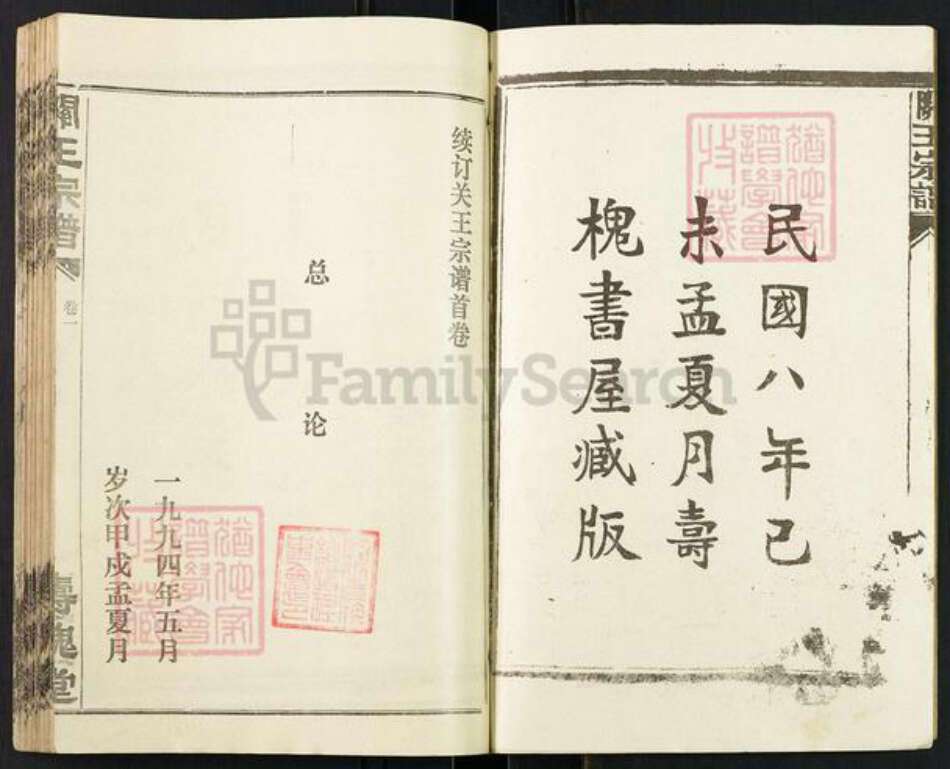 關王宗譜
民國八年己
未孟夏月壽
槐書屋藏版
续订关王宗谱首卷
总论
一九九四年五月
岁次甲戍孟夏月
關王宗譜
卷一
壽槐堂
FamilySearch